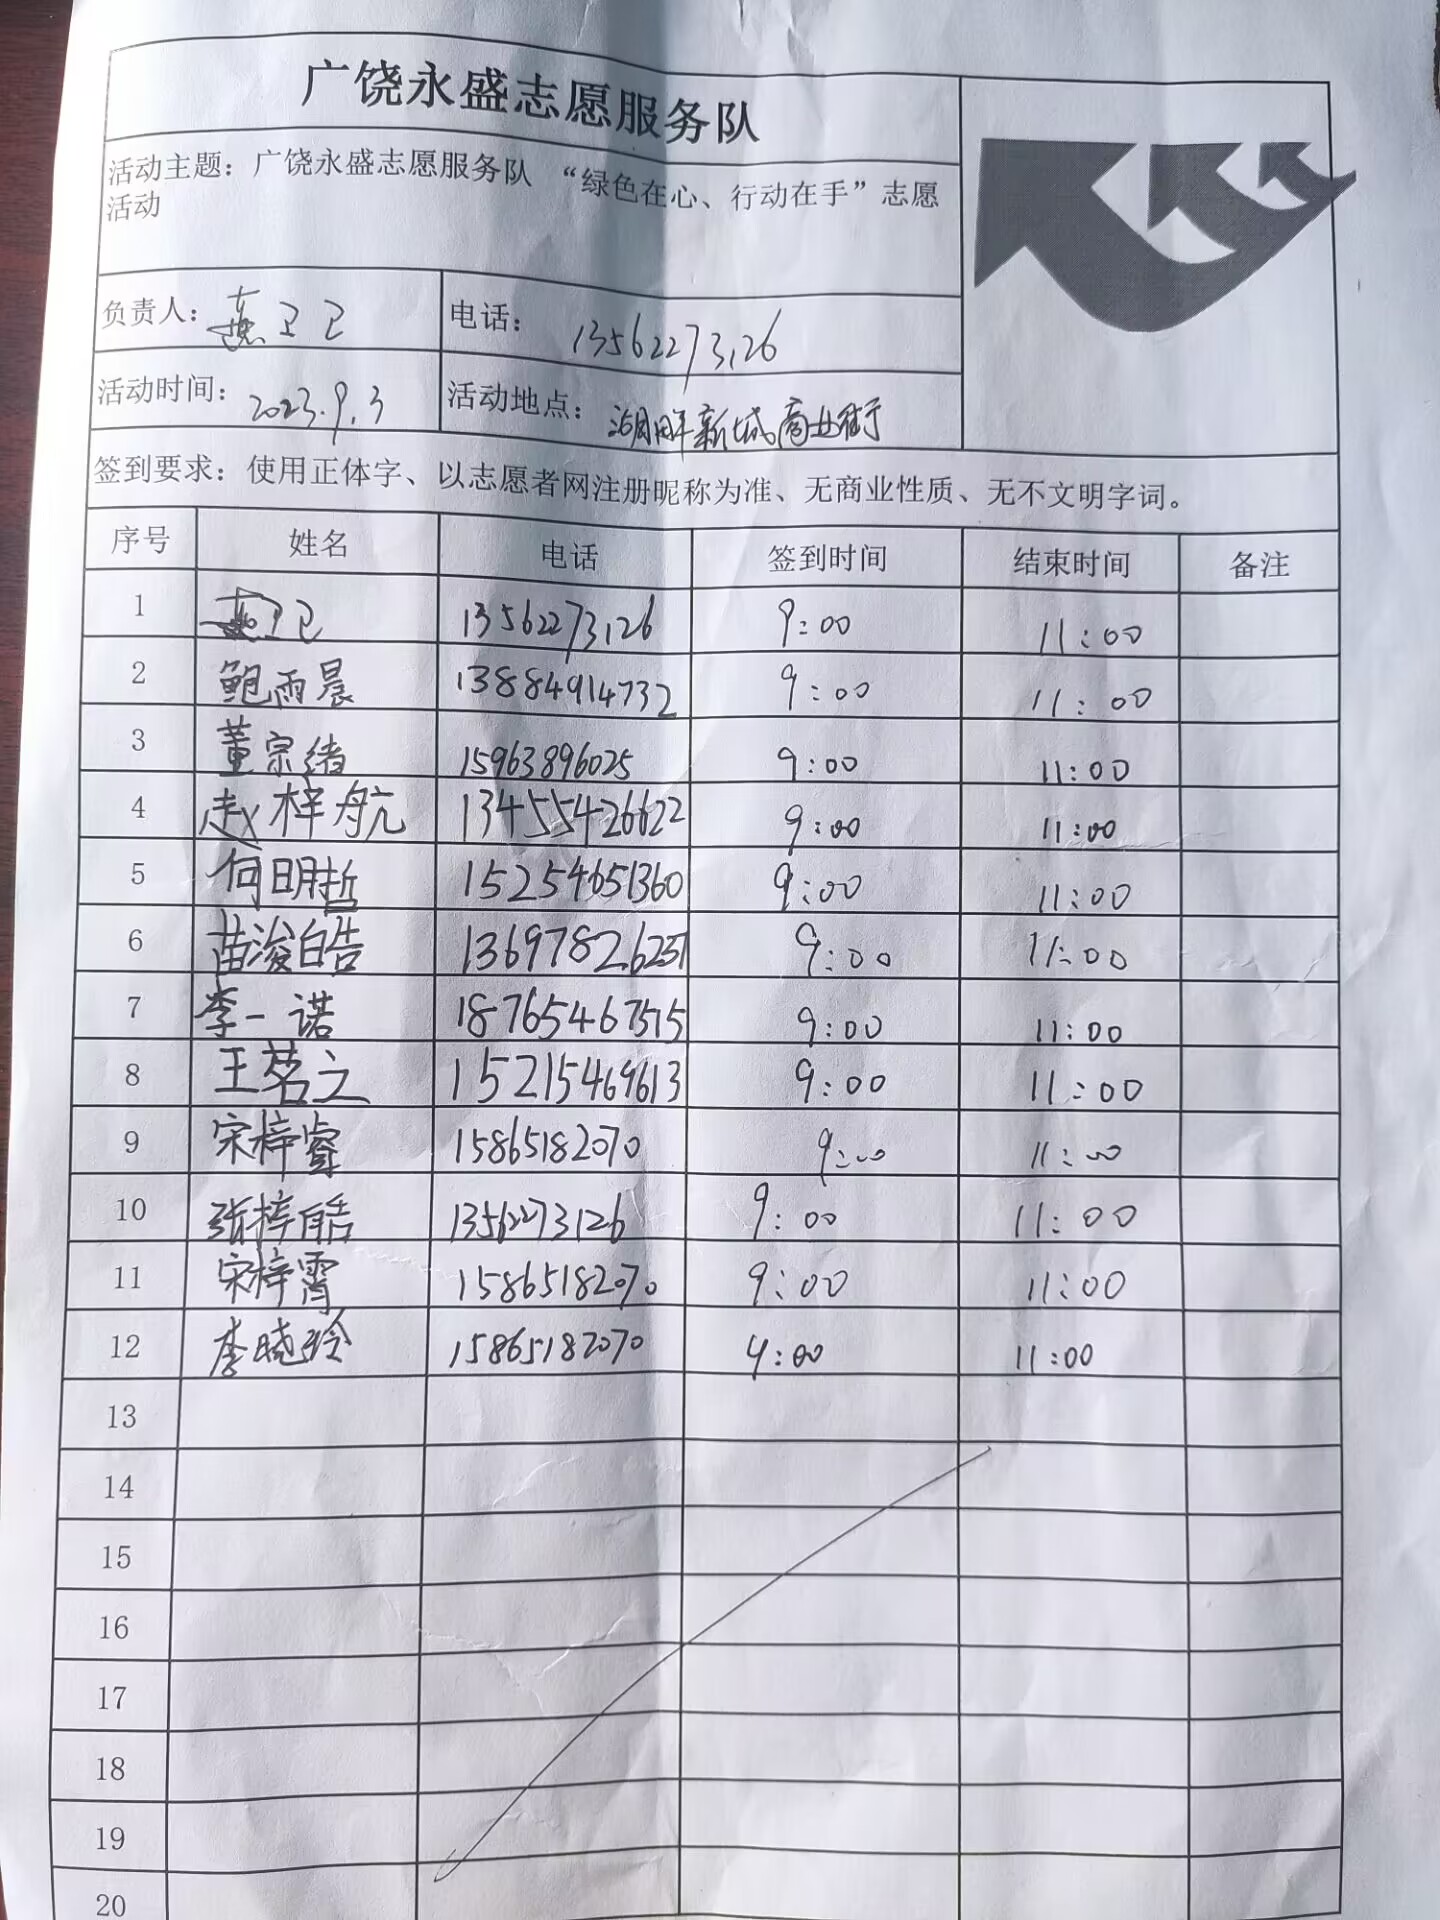 广饶永盛志愿服务队
活动主题：广饶永盛志愿服务队 “绿色在心、行动在手”志愿
活动
负责人： 卫卫 电话： 13562273126
活动时间： 2023.9.3 活动地点： 湖畔新城商业街
签到要求：使用正体字、以志愿者网注册昵称为准、无商业性质、无不文明字词。
序号 姓名 电话 签到时间 结束时间 备注
1 13562273126 9:00 11:00
2 鲍雨晨 13884914732 9:00 11:00
3 董宗绪 15963896025 9:00 11:00
4 赵梓航 13455426622 9:00 11:00
5 何明哲 15254651360 9:00 11:00
6 苗浚皓 13697826257 9:00 11:00
7 李一诺 18765467515 9:00 11:00
8 王茗之 15215469613 9:00 11:00
9 宋梓睿 15865182070 9:00 11:00
10 张梓皓 13562273126 9:00 11:00
11 宋梓霄 15865182070 9:00 11:00
12 李晓玲 15865182070 9:00 11:00
13
14
15
16
17
18
19
20